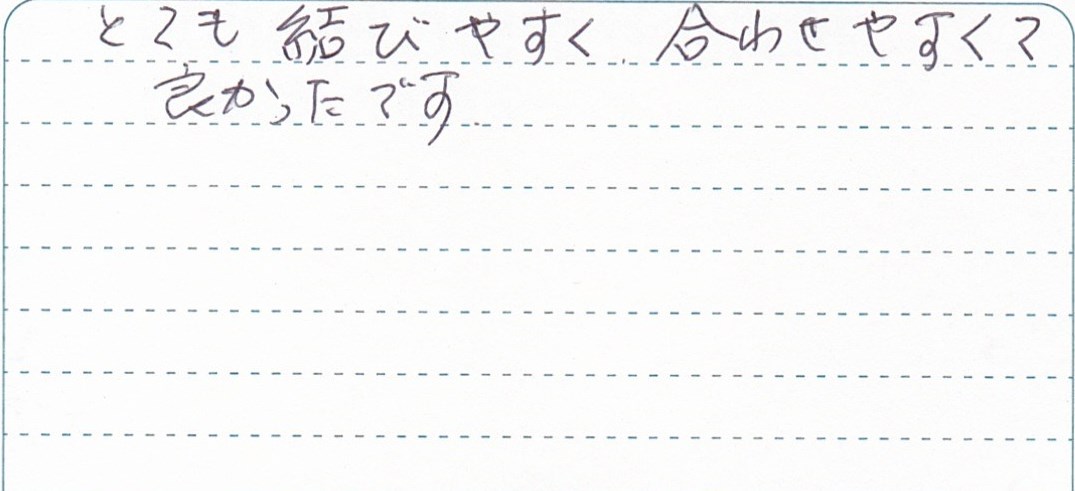 とても結びやすく、合わせやすくて
良かったです.